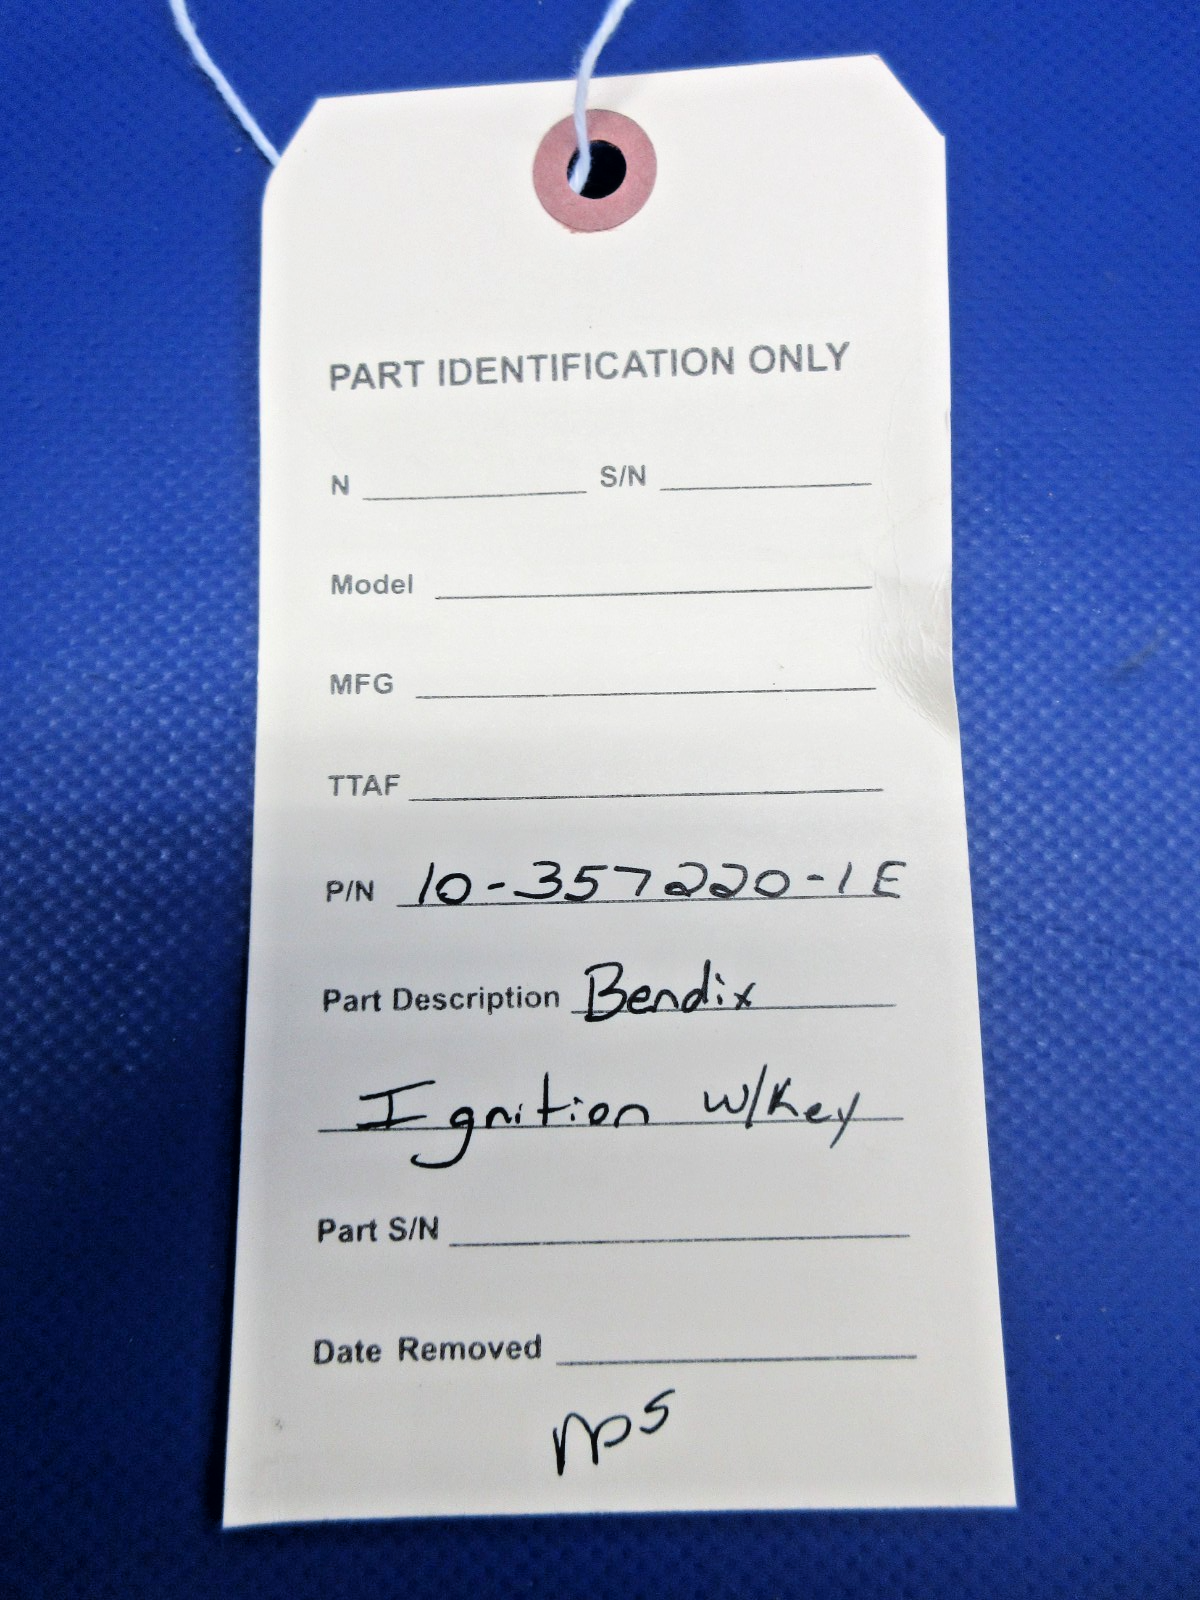 PART IDENTIFICATION ONLY
N S/N
Model
MFG
TTAF
P/N 10-357220-1E
Part Description Bendix
Ignition w/Key
Part S/N
Date Removed